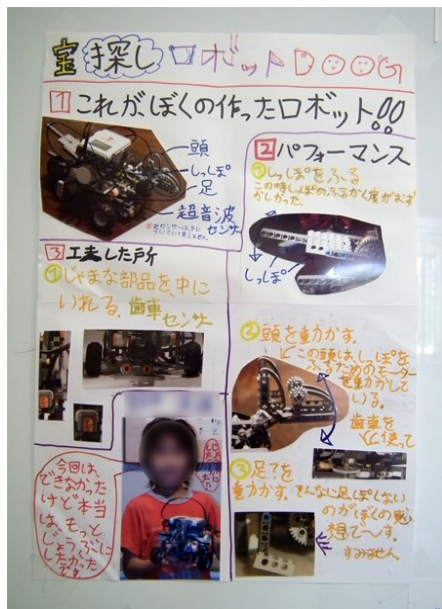 宝探しロボットDOOG
1 これが、ぼくの作ったロボット!!
頭
しっぽ
足
超音波
センサ
2 パフォーマンス
①しっぽをふる
この時しっぽのふるかく度がむず
かしかった。
しっぽ
3 工夫した所
①じゃまな部品を、中に
いれる。歯車
センサー
②頭を動かす。
この頭は、しっぽを
ふるためのモーター
を動かして
いる。
歯車を
使って
③足?を
動かす。そんなに足っぽくない
のがぼくの感
想で〜す。
すみません。
今回は、
できなかった
けど本当
は、もっと
じょうぶに
したかった
です。